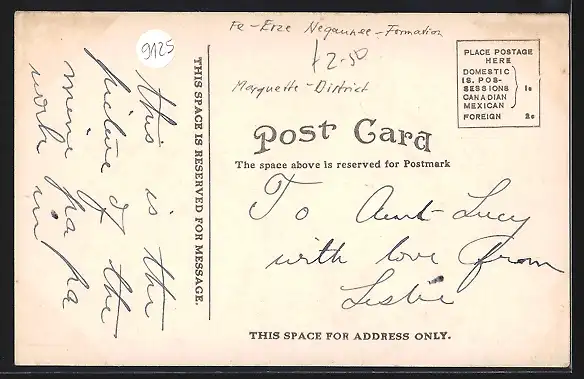 9125
this is the
picture of the
mine pa pa
work in
THIS SPACE IS RESERVED FOR MESSAGE.
Fe-Erze Negaunee-Formation
£2-50
Marquette-District
PLACE POSTAGE
HERE
DOMESTIC
IS. POS-
SESSIONS
CANADIAN
MEXICAN
1c
FOREIGN 2c
Post Card
The space above is reserved for Postmark
To Aunt Lucy
with love from
Leslie
THIS SPACE FOR ADDRESS ONLY.